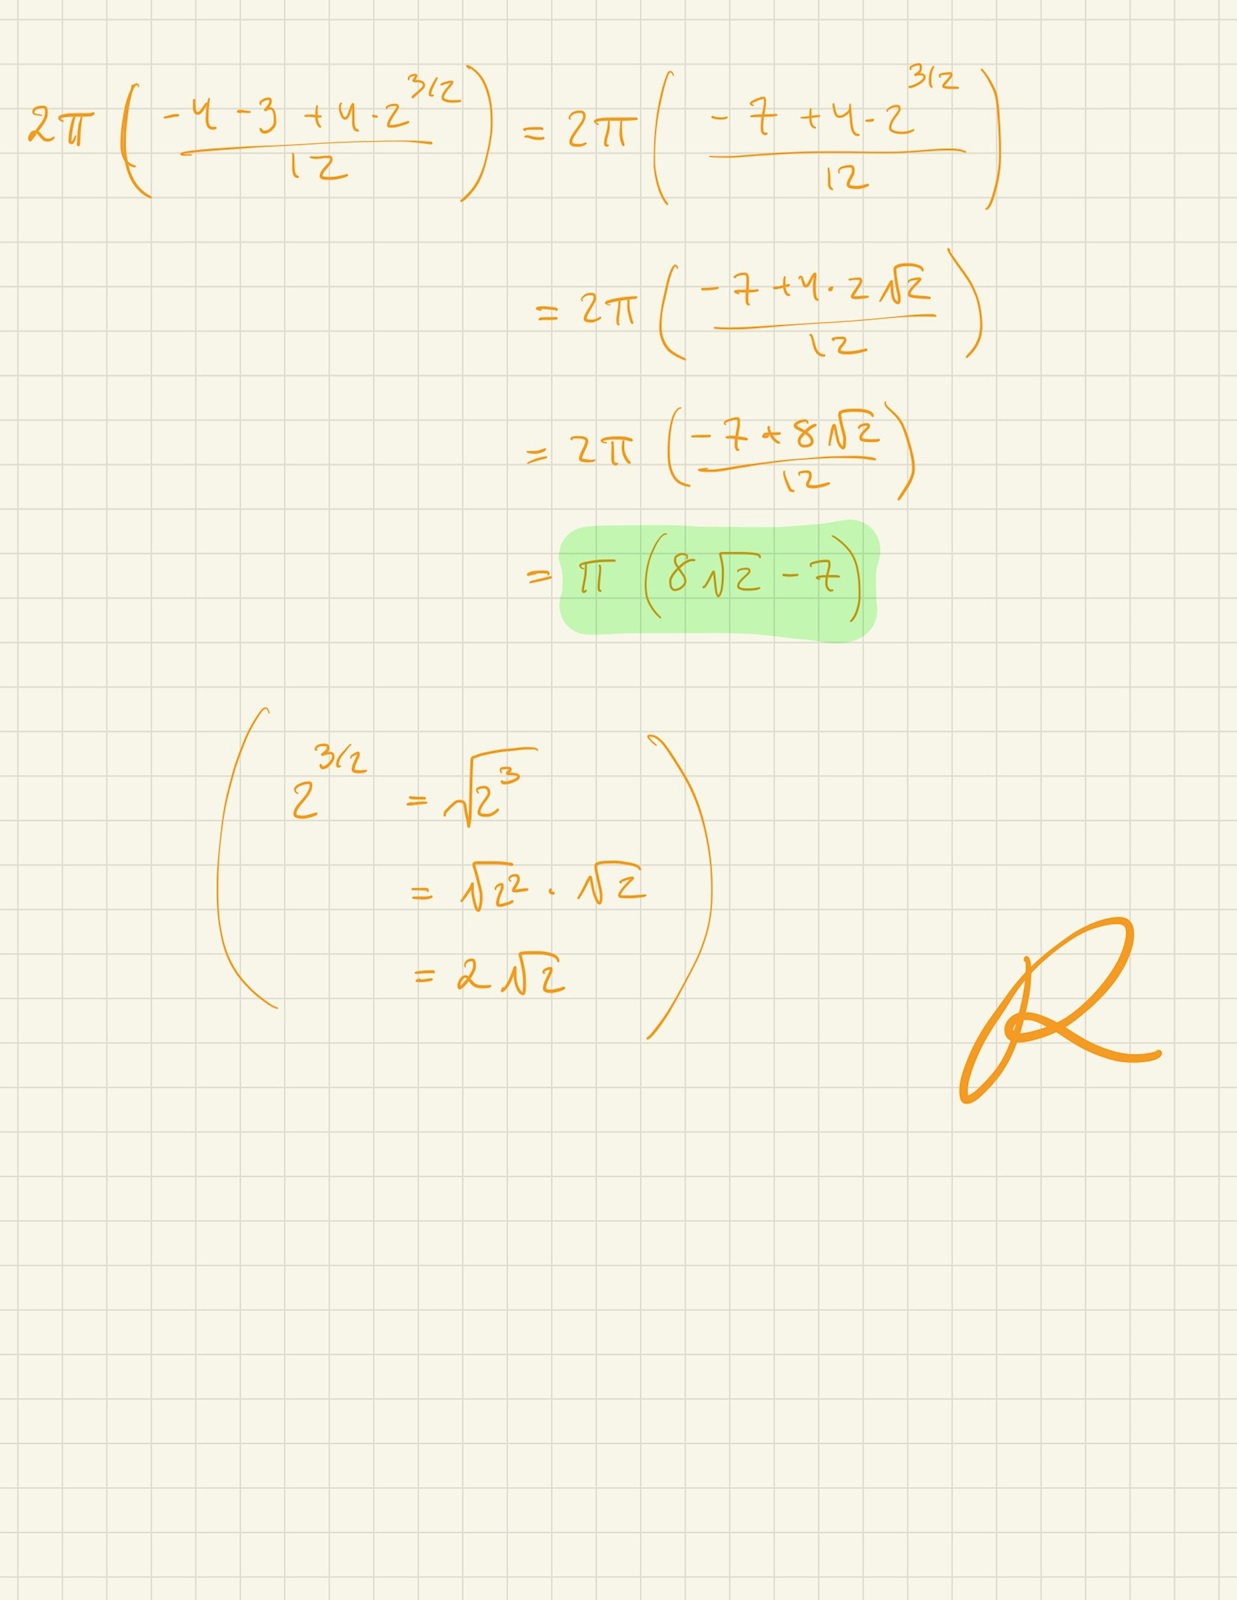 2π ( (-4 - 3 + 4·2^{3/2}) / 12 ) = 2π ( (-7 + 4·2^{3/2}) / 12 )
= 2π ( (-7 + 4·2√2) / 12 )
= 2π ( (-7 + 8√2) / 12 )
= π (8√2 - 7)
( 2^{3/2} = √(2^3)
= √(2^2) · √2
= 2√2 )
R